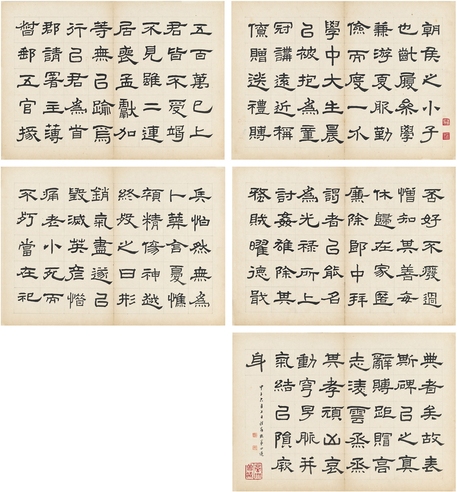 朝侯之小子
也斷履桑學
兼游夏服勤
儉而度一
學中大生晨
已被抱為童
冠講遠近稱
僚贈送禮賻
五百萬已上
君皆不受竭
不見雖二連
居喪孟獻加
等無已踰焉
行已君為首
郡請署主薄
督郵五官掾
否好不廢過
憎知其善每
休歸在家匿
廉除郎中拜
謁者已能名
為光祿所上
討姦雄除其
蟊賊曜德戢
兵怕然無為
卜葬含憂憔
顇精傷神越
終歿之日形
銷氣盡遂已
毀滅英彥惜
痛老小死而
不朽當在祀
典者矣故表
斯碑已之真
辭賻距贈高
志凌雲烝烝
其孝頎凶哀
動穹旻脈并
氣結已隕厥
身